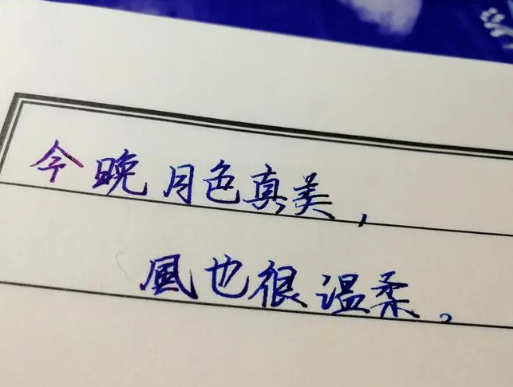 今晚月色真美，
風也很温柔。